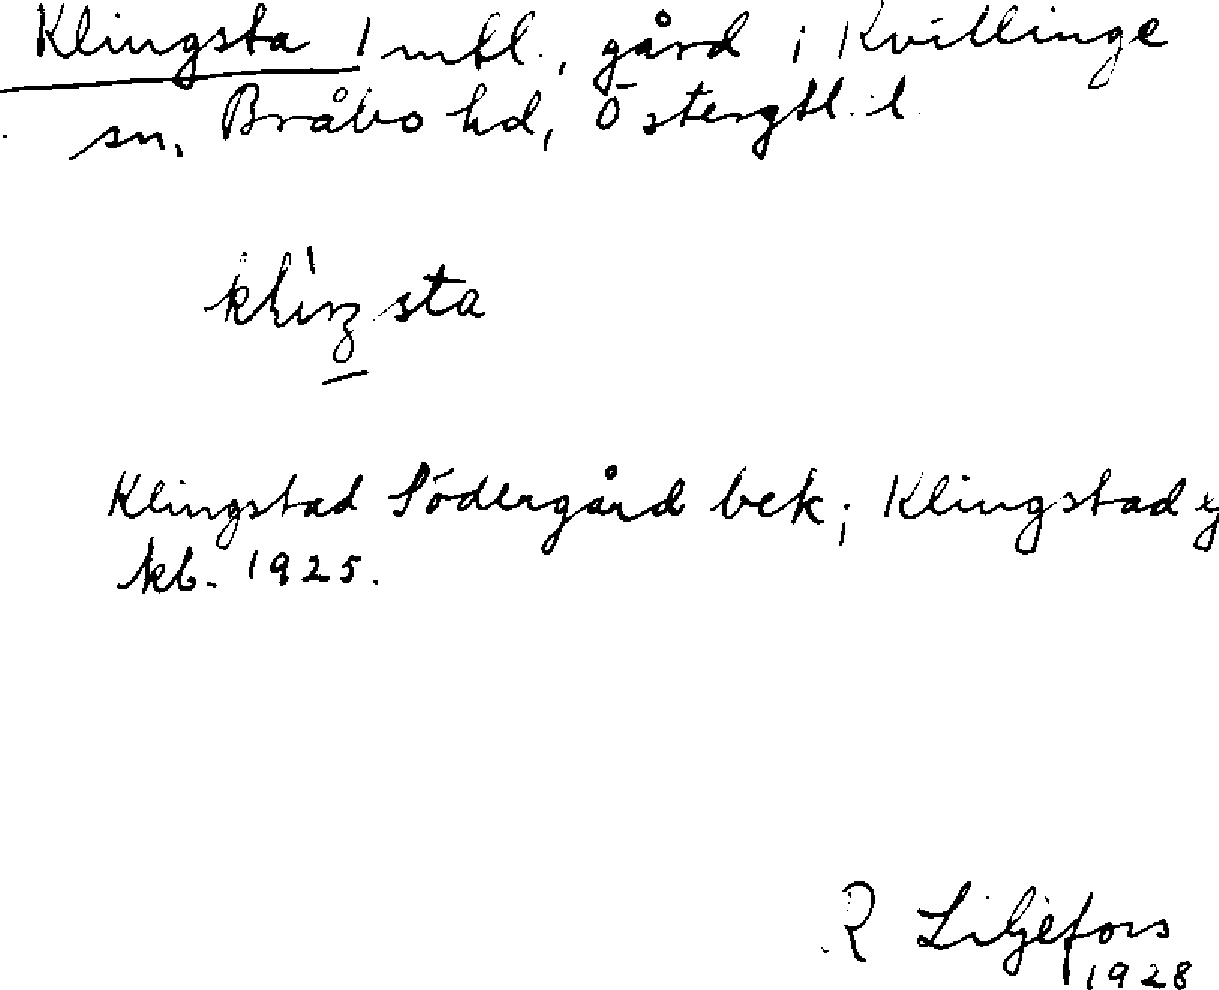 Klingsta 1 mtl., gård i Kvillinge
sn, Bråbo hd, Östergtl. l.
Klingstad Södergård bek; Klingstad
kb. 1925.
R Liljefors
1928